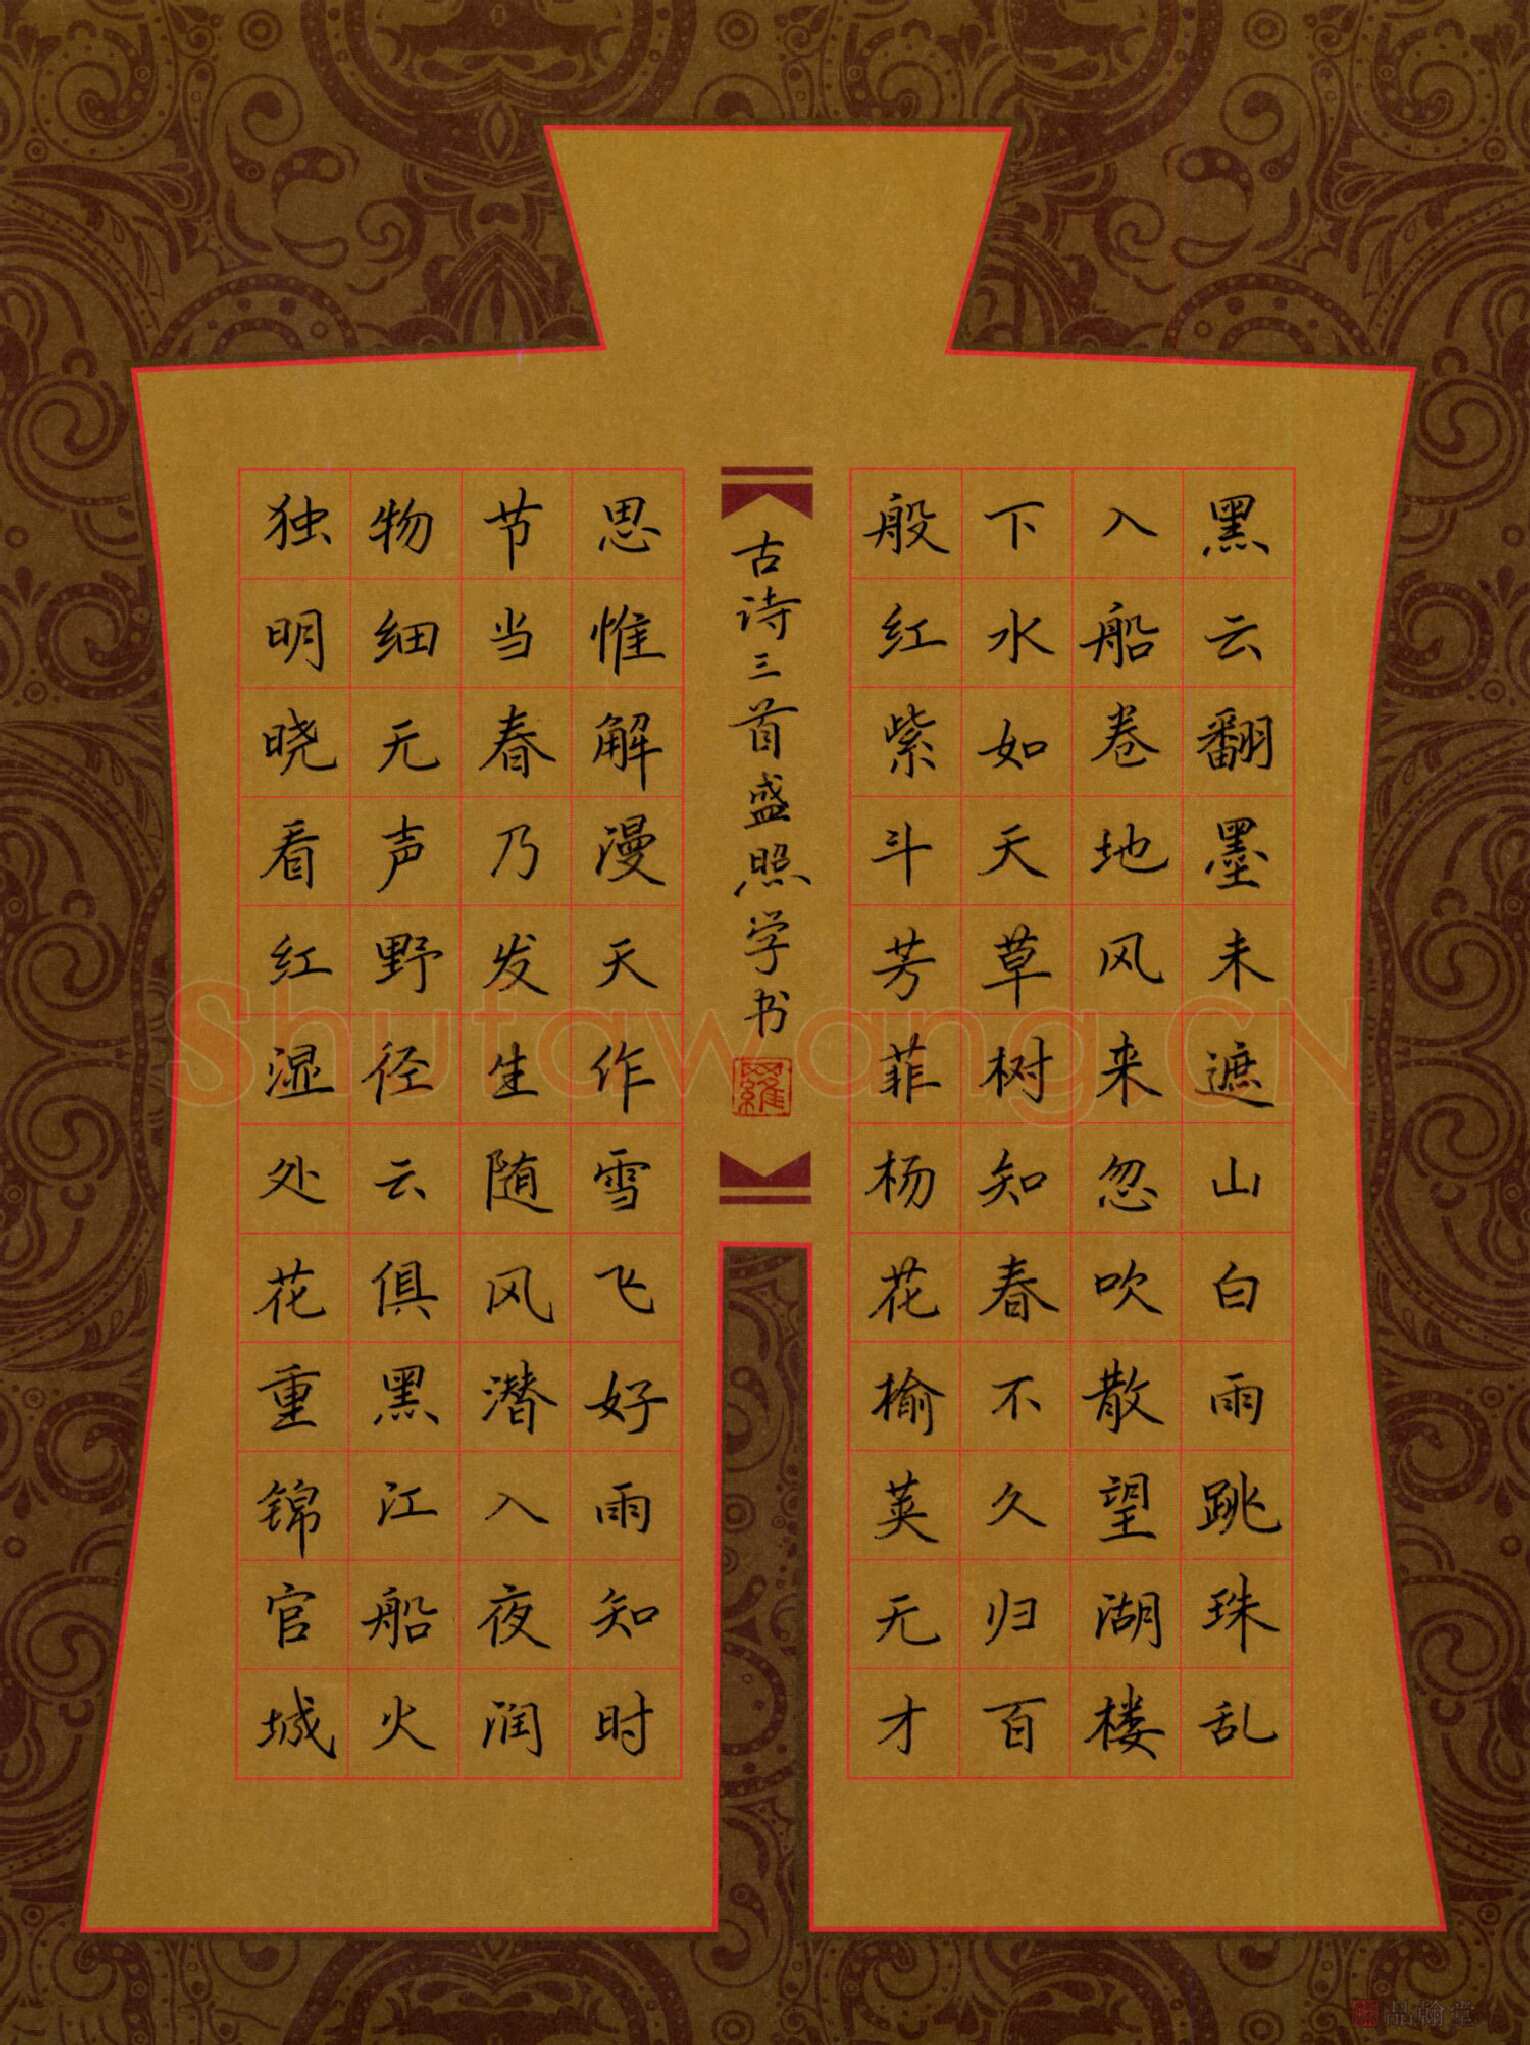 黑云翻墨未遮山白雨跳珠乱
入船卷地风来忽吹散望湖楼
下水如天草树知春不久归百
般红紫斗芳菲杨花榆荚无才
古诗三首盛照学书
羅
思惟解漫天作雪飞好雨知时
节当春乃发生随风潜入夜润
物细无声野径云俱黑江船火
独明晓看红湿处花重锦官城
Shufawang.CN
品翰堂